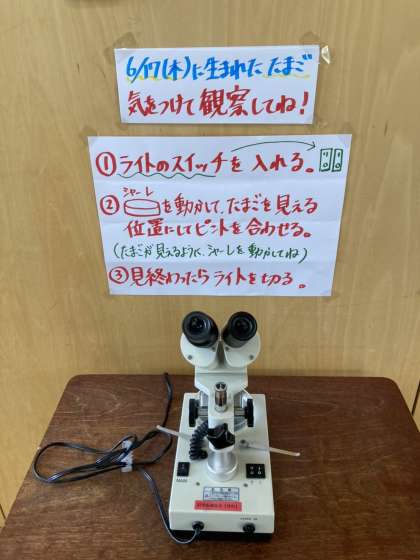 6/17(木)に生まれた たまご
気をつけて観察してね!
①ライトのスイッチを入れる。
シャーレ
②を動かして、たまごを見える
位置にしてピントを合わせる。
(たまごが見えるように、シャーレを動かしてね)
③見終わったらライトを切る。
MAIN